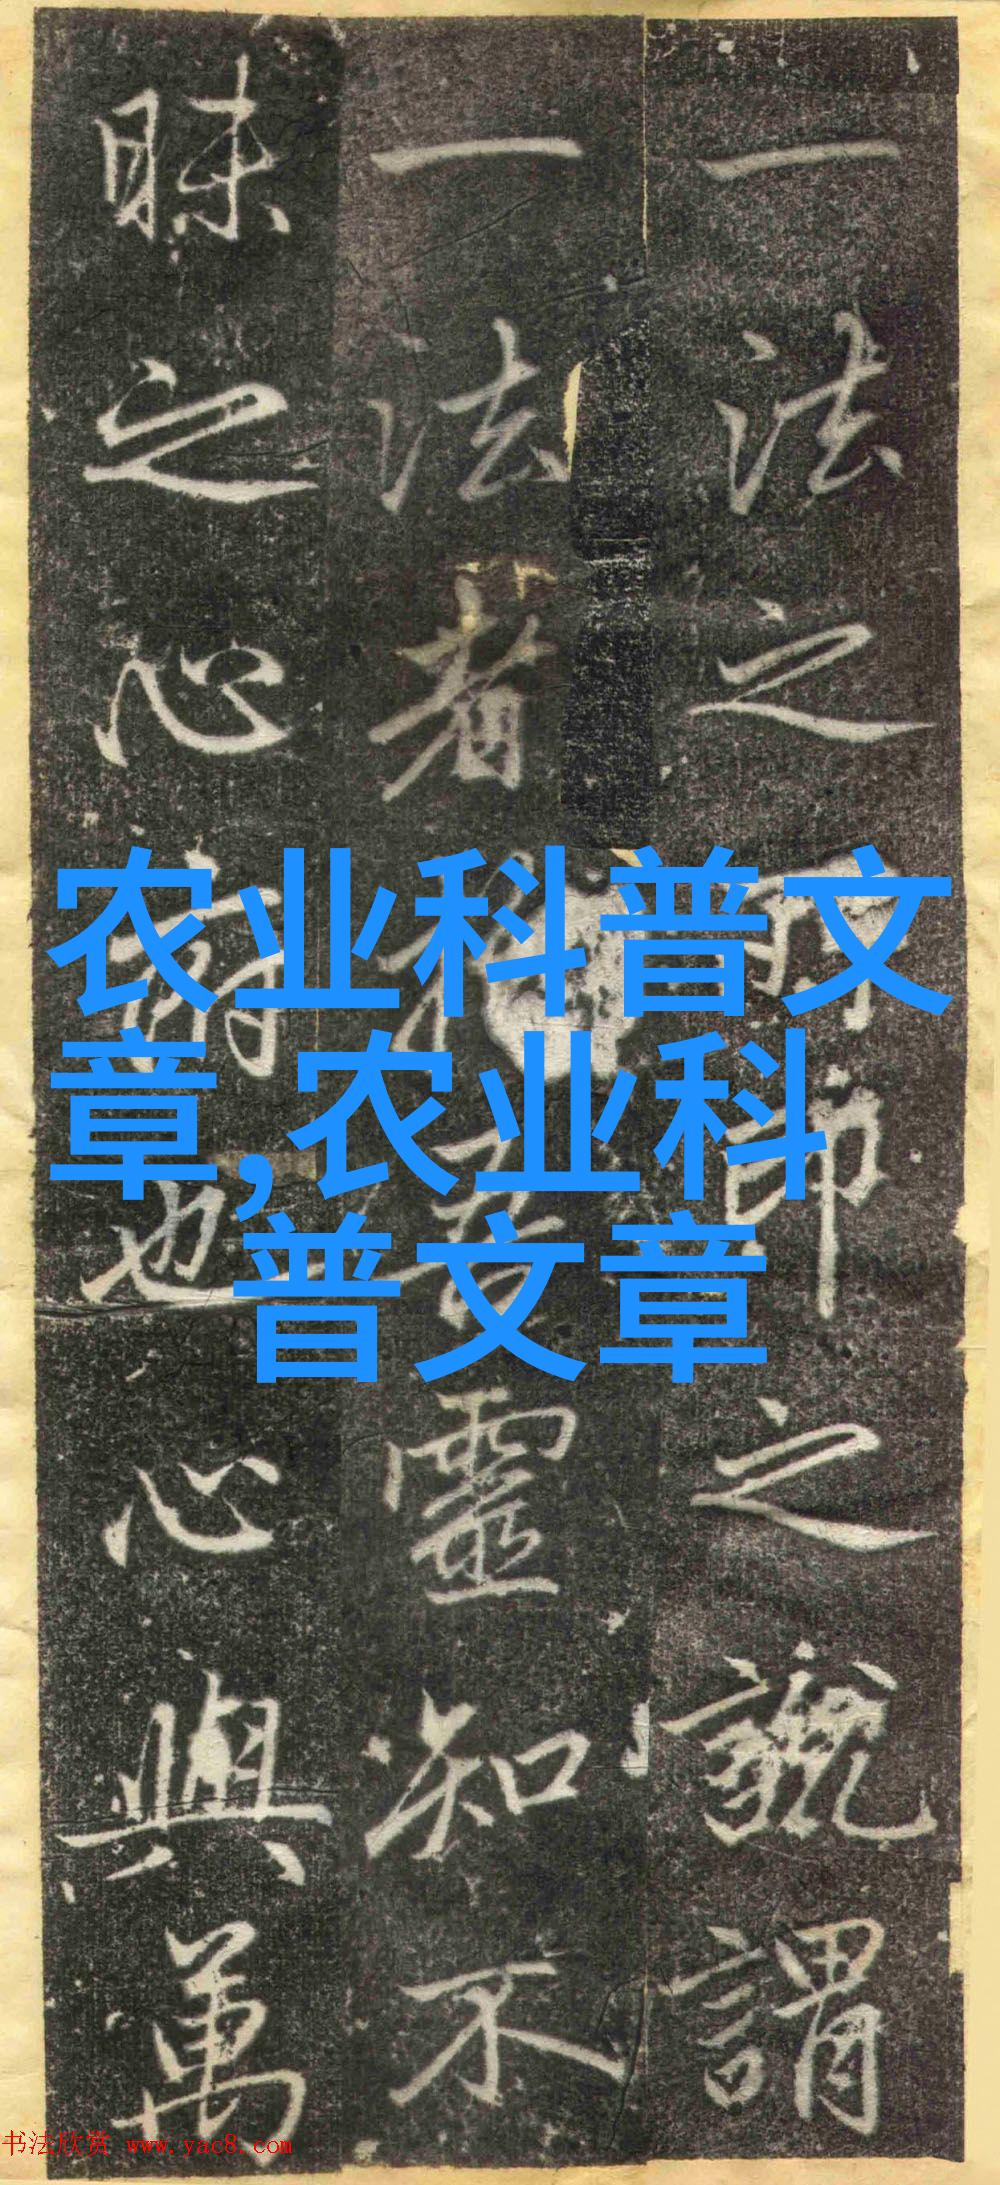 一法之印之號謂
一法者靈知不
昧之心也心與萬
农业科普文
章,农业科
普文章
书法欣赏 www.yac8.com